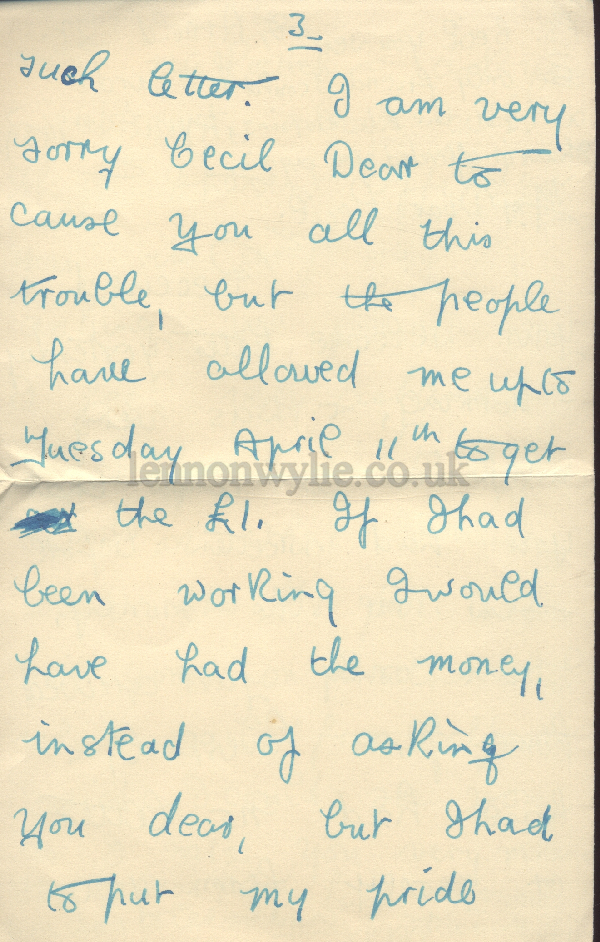 3
such letter. I am very
sorry Cecil Dear to
cause you all this
trouble, but the people
have allowed me up to
Tuesday April 11th to get
lennonwylie.co.uk
the £1. If I had
been working I would
have had the money,
instead of asking
you dear, but I had
to put my pride